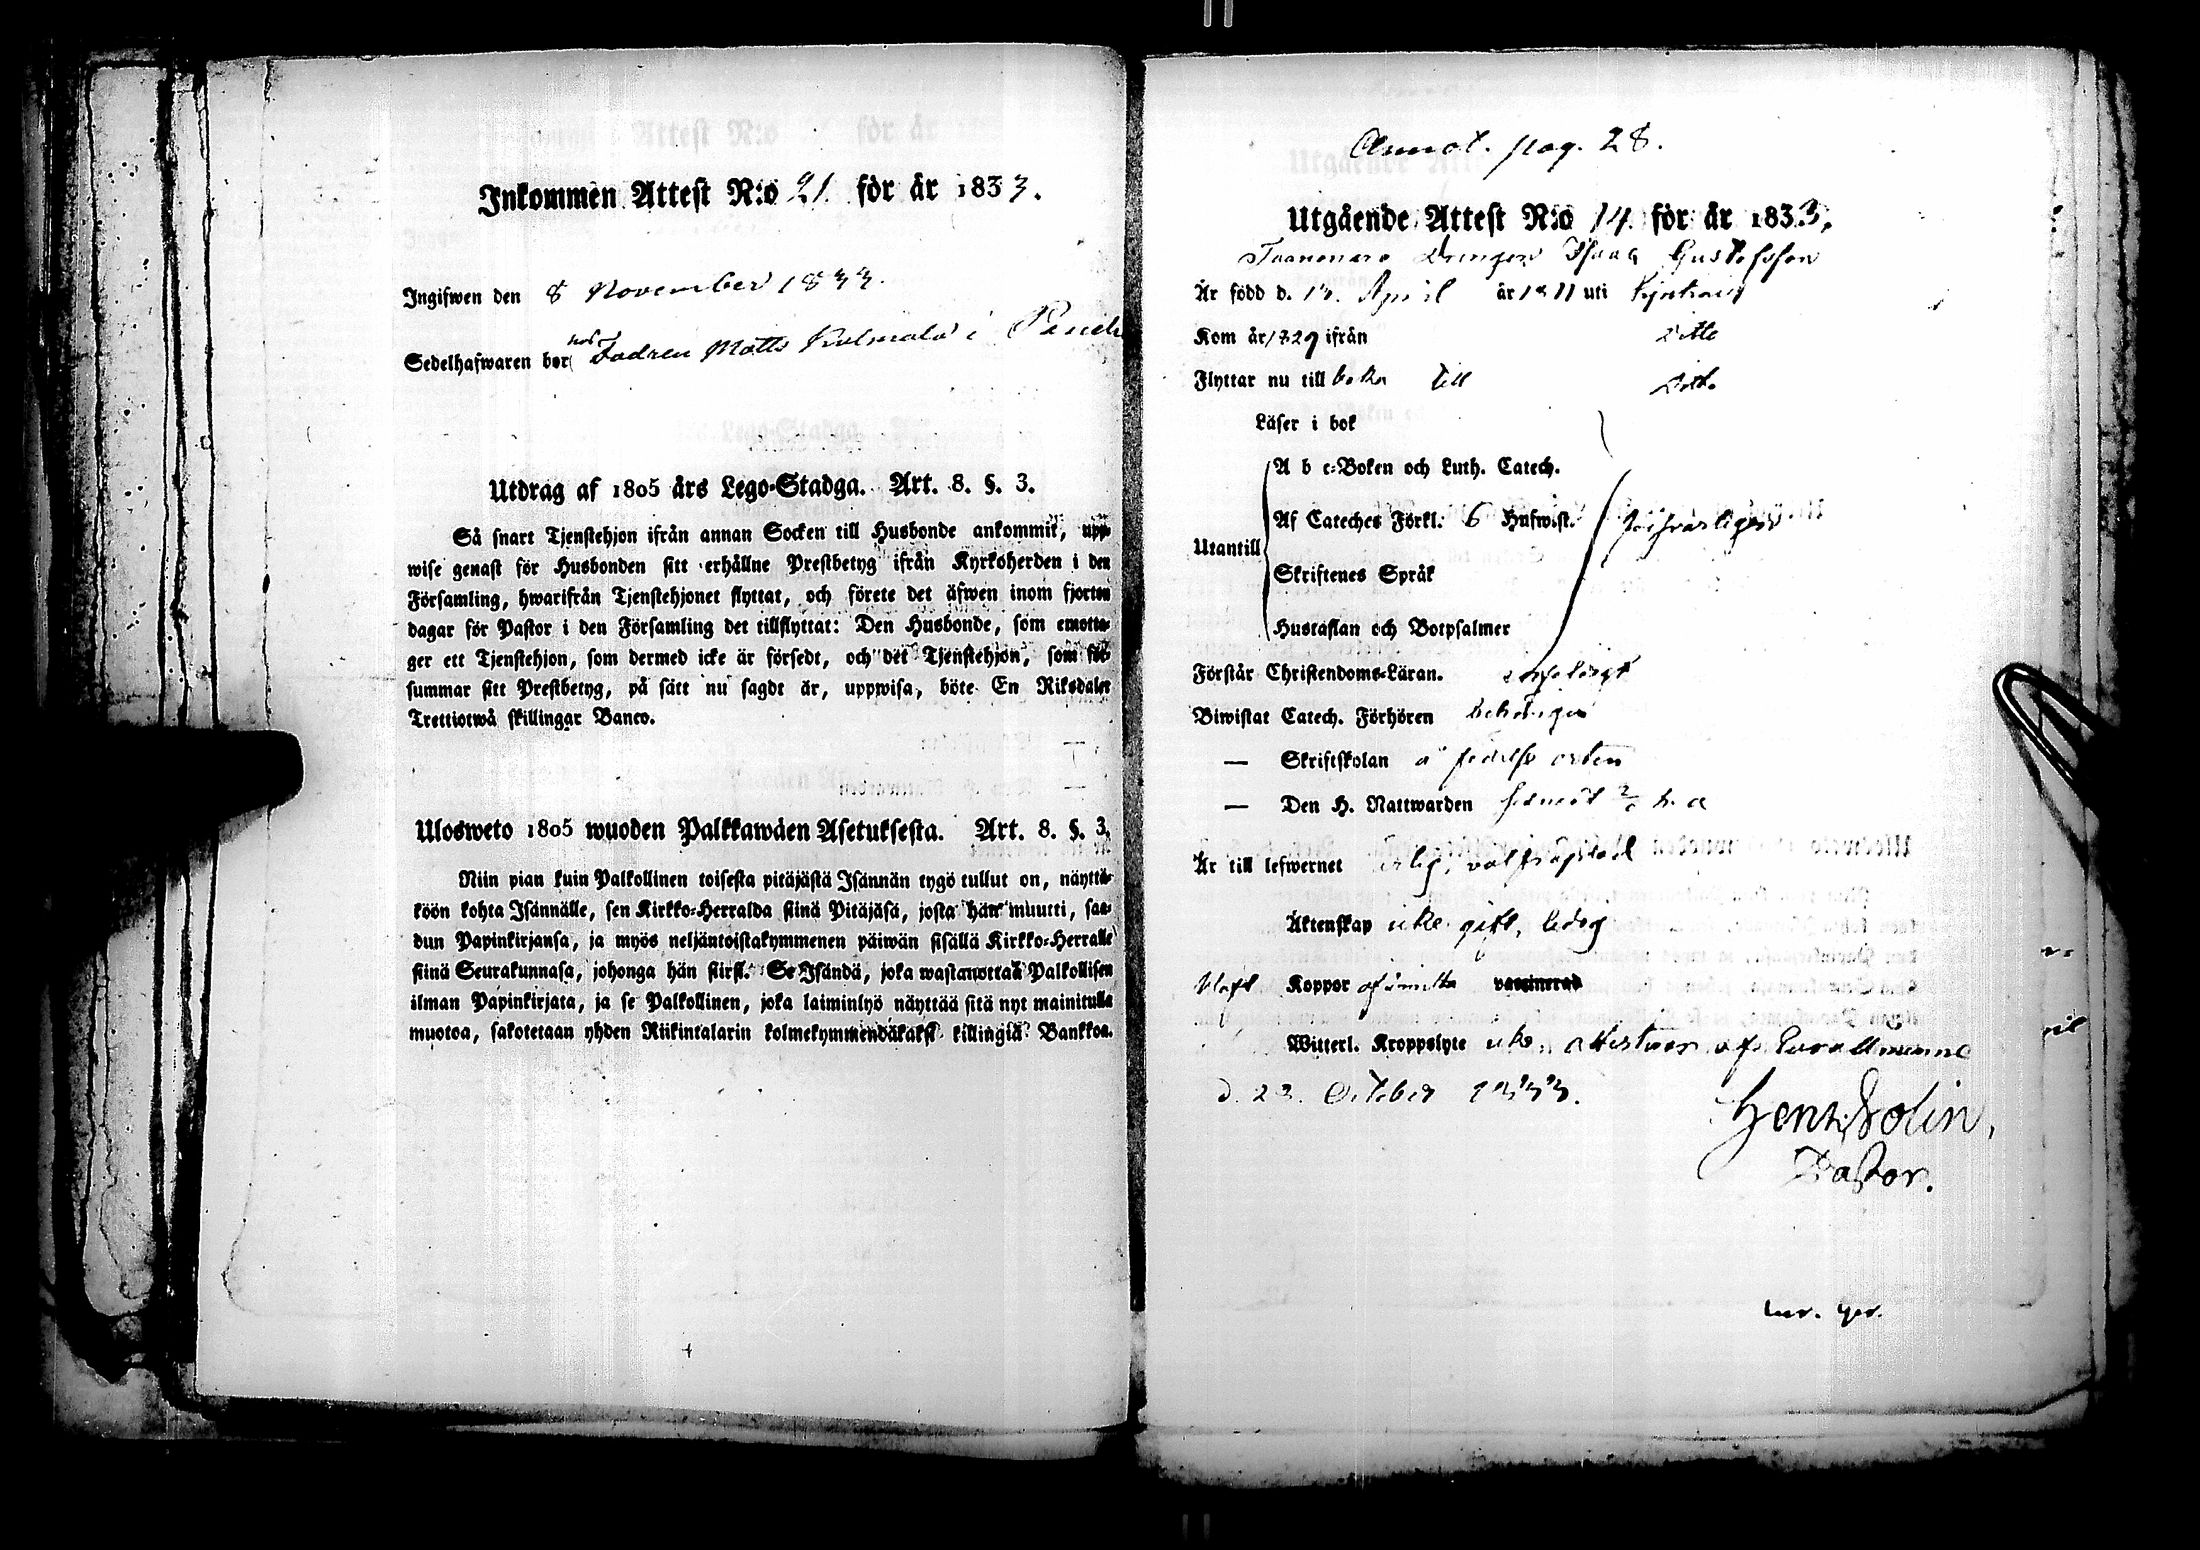 Inkommen Attest N:o 21. för år 1833.
Ingifwen den 8 November 1833.
Sedelhafwaren bor hos Fadren Matts Kolmala i
Utdrag af 1805 års Lego-Stadga. Art. 8. §. 3.
Så snart Tjenstehjon ifrån annan Socken till Husbonde ankommit, upp-
wise genast för Husbonden sitt erhållne Prestbetyg ifrån Kyrkoherden i den
Församling, hwarifrån Tjenstehjonet flyttat, och förete det äfwen inom fjorton
dagar för Pastor i den Församling det tillflyttat: Den Husbonde, som emotta-
ger ett Tjenstehjon, som dermed icke är försedt, och det Tjenstehjon, som för-
summar sitt Prestbetyg, på sätt nu sagdt är, uppwisa, böte En Riksdaler
Trettiotwå skillingar Banco.
Ulosweto 1805 wuoden Palkkawäen Asetuksesta. Art. 8. §. 3.
Niin pian kuin Palkollinen toisesta pitäjästä Isännän tygö tullut on, näyttä-
köön kohta Isännälle, sen Kirkko-Herralda siinä Pitäjäsä, josta hän muutti, saa-
dun Papinkirjansa, ja myös neljäntoistakymmenen päiwän sisällä Kirkko-Herralle
siinä Seurakunnasa, johonga hän siirsi. Se Isändä, joka wastanottaa Palkollisen
ilman Papinkirjata, ja se Palkollinen, joka laiminlyö näyttää sitä nyt mainitulla
muotoa, sakotetaan yhden Riikintalarin kolmekymmendäkaksi killingiä Bankkoa.
Annot. pag. 28.
Utgående Attest N:o 14. för år 1833.
Drängen Isaac Gustafsson
Är född d. 13. April år 1811 uti
Kom år 1829 ifrån Ditto
Flyttar nu till baka till Ditto
Läser i bok
A b c-Boken och Luth. Catech.
Af Cateches Förkl. 6 Hufwist.
Utantill
Skriftenes Språk
Hustaflan och Botpsalmer
Förstår Christendoms-Läran. enfaldigt
Biwistat Catech. Förhören behörigen
— Skriftskolan å födelse orten
— Den H. Nattwarden senast h. a
Är till lefwernet ärlig, välfrägdad
Äktenskap icke gift, ledig
Haft Koppor af smitta vaccinerad
Witterl. Kroppslyte icke, attesteras af Euraåminne
d. 23. October 1833.
Henr. Bolin,
Pastor.